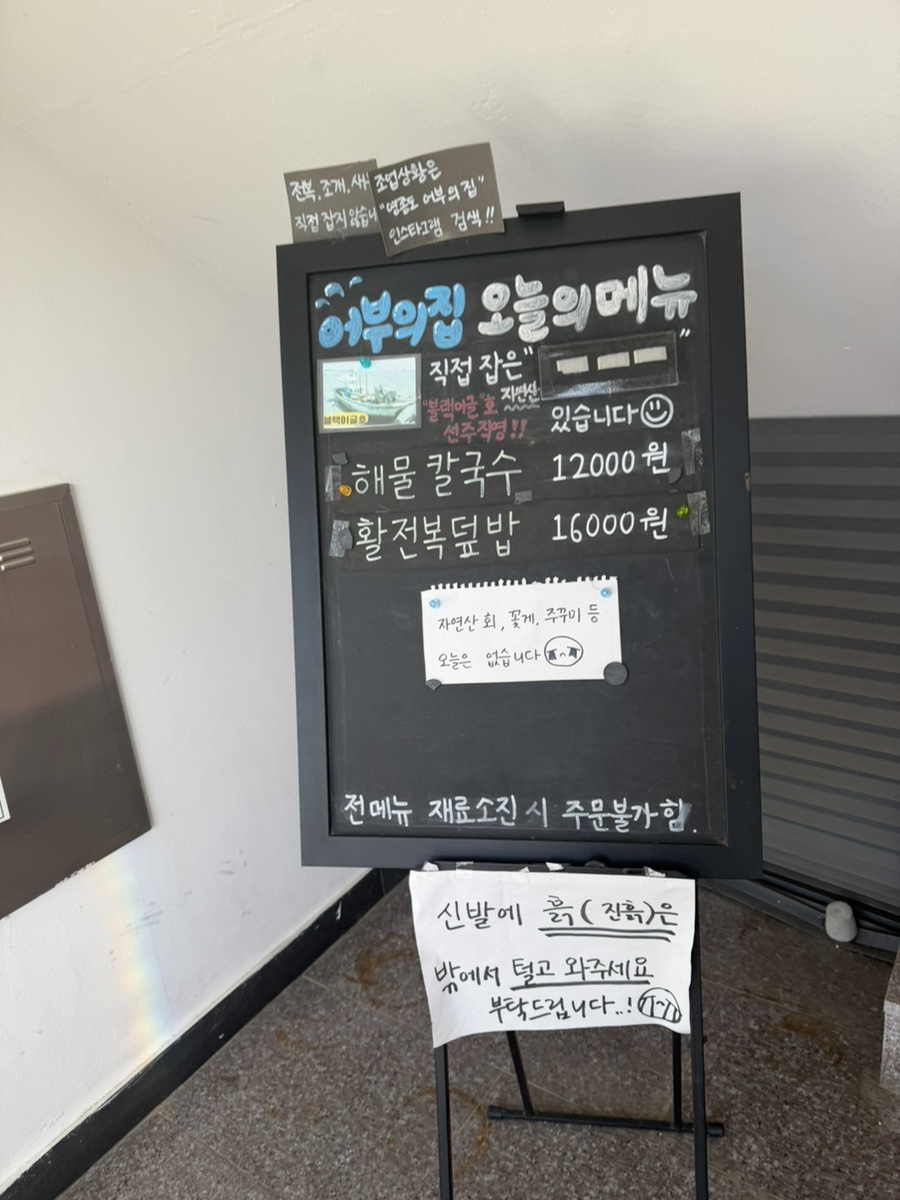 전복, 조개, 새
직접 잡지 않습니
조업상황은
"영종도 어부의 집"
인스타그램 검색!!
어부의집 오늘의메뉴
직접 잡은" "
블랙이글호
"블랙이글"호 자연산
선주직영!!
있습니다
해물 칼국수 12000원
활전복덮밥 16000원
자연산 회, 꽃게, 주꾸미 등
오늘은 없습니다
전메뉴 재료소진 시 주문불가함.
신발에 흙(진흙)은
밖에서 털고 와주세요
부탁드립니다..!